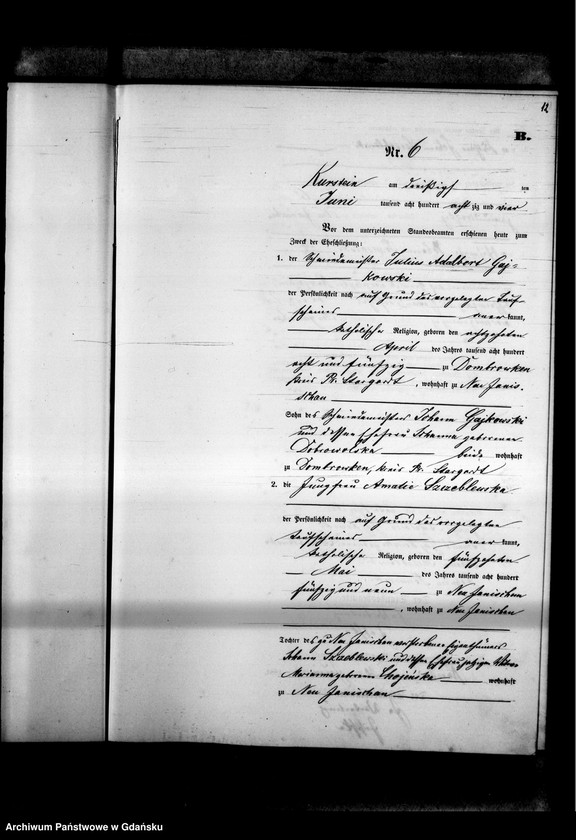 12
B.
Nr. 6
Kurstein am dreißigsten
Juni tausend acht hundert achtzig und vier
Vor dem unterzeichneten Standesbeamten erschienen heute zum
Zweck der Eheschließung:
1. der Schmiedemeister Julius Adalbert Gaj-
kowski
der Persönlichkeit nach auf Grund des vorgelegten Tauf-
scheines anerkannt,
katholischer Religion, geboren den achtzehnten
April des Jahres tausend acht hundert
acht und fünfzig zu Dombrowken
Kreis Pr. Stargardt, wohnhaft zu Neu Janis-
schau
Sohn des Schmiedemeisters Johann Gajkowski
und dessen Ehefrau Johanna geborenen
Dobrowolska beide wohnhaft
zu Dombrowken, Kreis Pr. Stargardt
2. die Jungfrau Amalie Szreblewska
der Persönlichkeit nach auf Grund des vorgelegten
Taufscheines anerkannt,
katholischer Religion, geboren den fünfzehnten
Mai des Jahres tausend acht hundert
fünfzig und neun zu Neu Janischau
, wohnhaft zu Neu Janischau
Tochter des zu Neu Janischau verstorbenen Eigenthümers
Johann Szreblewski und dessen Ehefrau jetzigen Wittwe
Marianna geborene Chojnska wohnhaft
zu Neu Janischau
Archiwum Państwowe w Gdańsku